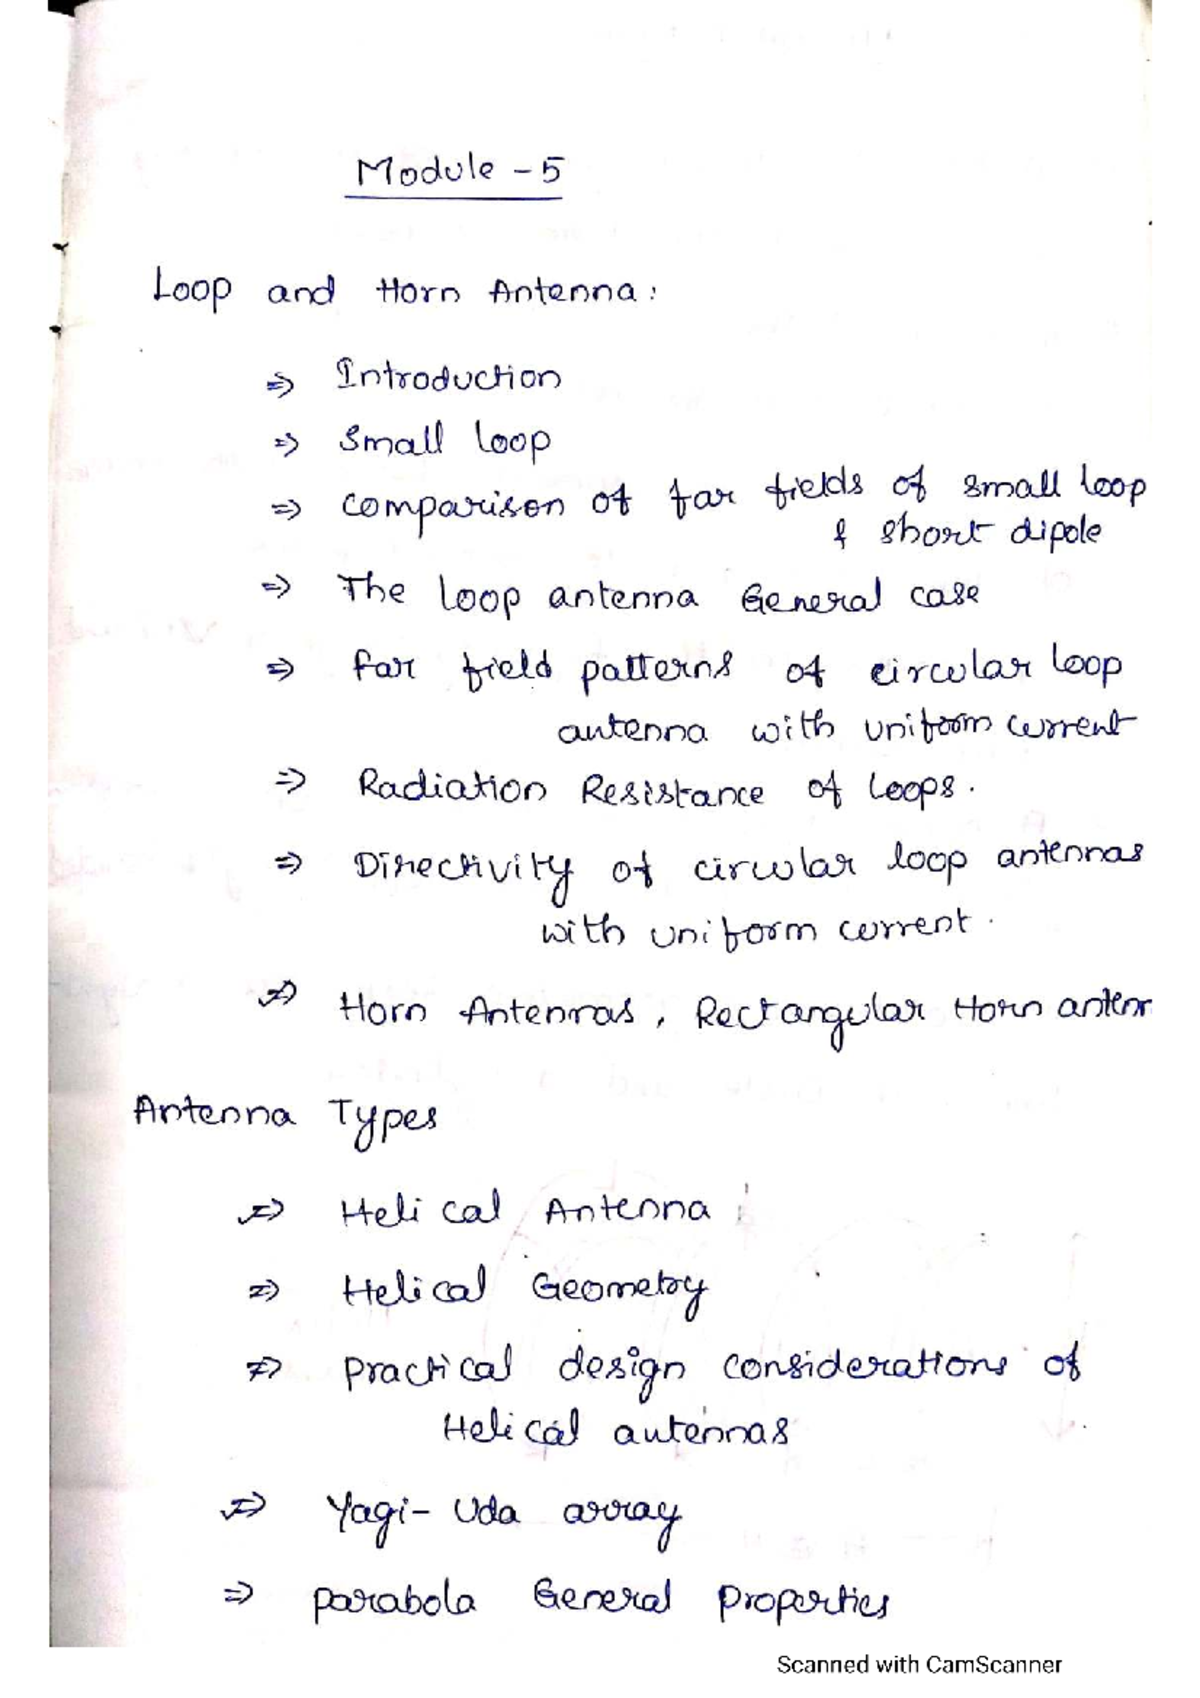 Module - 5
Loop and Horn Antenna:
⇒ Introduction
⇒ Small loop
⇒ Comparison of far fields of small loop
& short dipole
⇒ The loop antenna General case
⇒ Far field patterns of circular loop
antenna with uniform current
⇒ Radiation Resistance of loops.
⇒ Directivity of circular loop antennas
with uniform current.
⇒ Horn Antennas, Rectangular Horn anten
Antenna Types
⇒ Helical Antenna
⇒ Helical Geometry
⇒ Practical design considerations of
Helical antennas
⇒ Yagi-Uda array
⇒ Parabola General Properties
Scanned with CamScanner